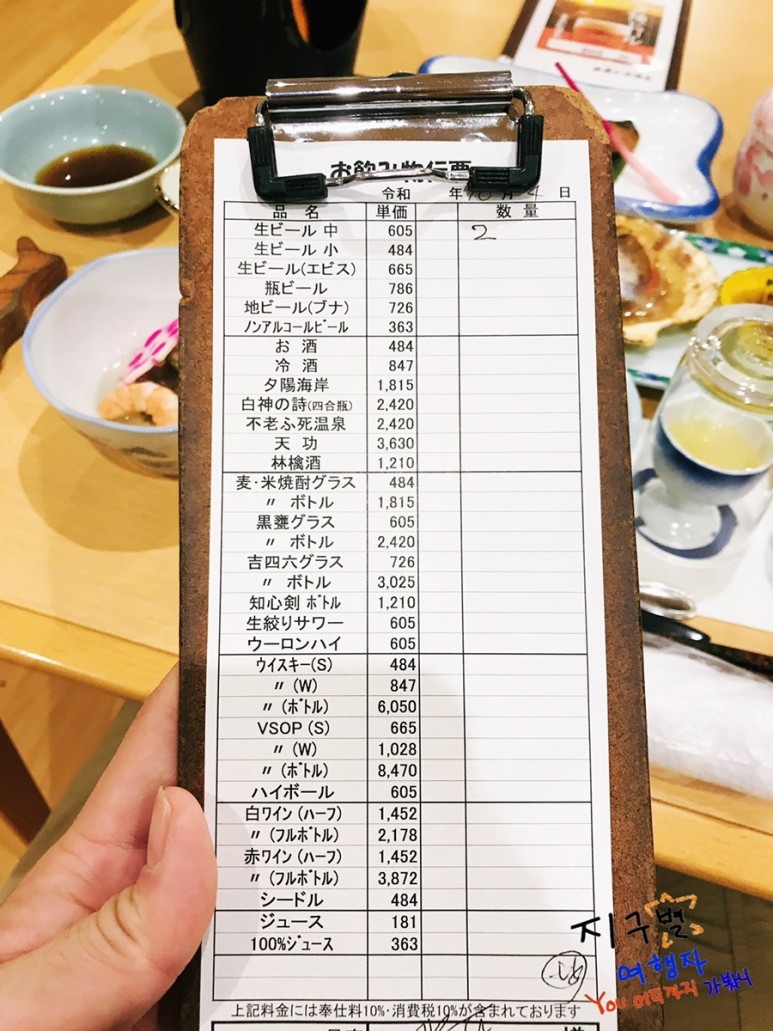 お飲み物伝票
令和 年 10 月 4 日
品 名 単価 数 量
生ビール 中 605 2
生ビール 小 484
生ビール(エビス) 665
瓶ビール 786
地ビール(ブナ) 726
ノンアルコールビール 363
お 酒 484
冷 酒 847
夕陽海岸 1,815
白神の詩(四合瓶) 2,420
不老ふ死温泉 2,420
天 功 3,630
林檎酒 1,210
麦・米焼酎グラス 484
〃 ボトル 1,815
黒甕グラス 605
〃 ボトル 2,420
吉四六グラス 726
〃 ボトル 3,025
知心剣 ボトル 1,210
生絞りサワー 605
ウーロンハイ 605
ウイスキー(S) 484
〃 (W) 847
〃 (ボトル) 6,050
VSOP (S) 665
〃 (W) 1,028
〃 (ボトル) 8,470
ハイボール 605
白ワイン (ハーフ) 1,452
〃 (フルボトル) 2,178
赤ワイン (ハーフ) 1,452
〃 (フルボトル) 3,872
シードル 484
ジュース 181
100%ジュース 363
上記料金には奉仕料10%・消費税10%が含まれております
지구별
여행자
You 어디까지 가봤니